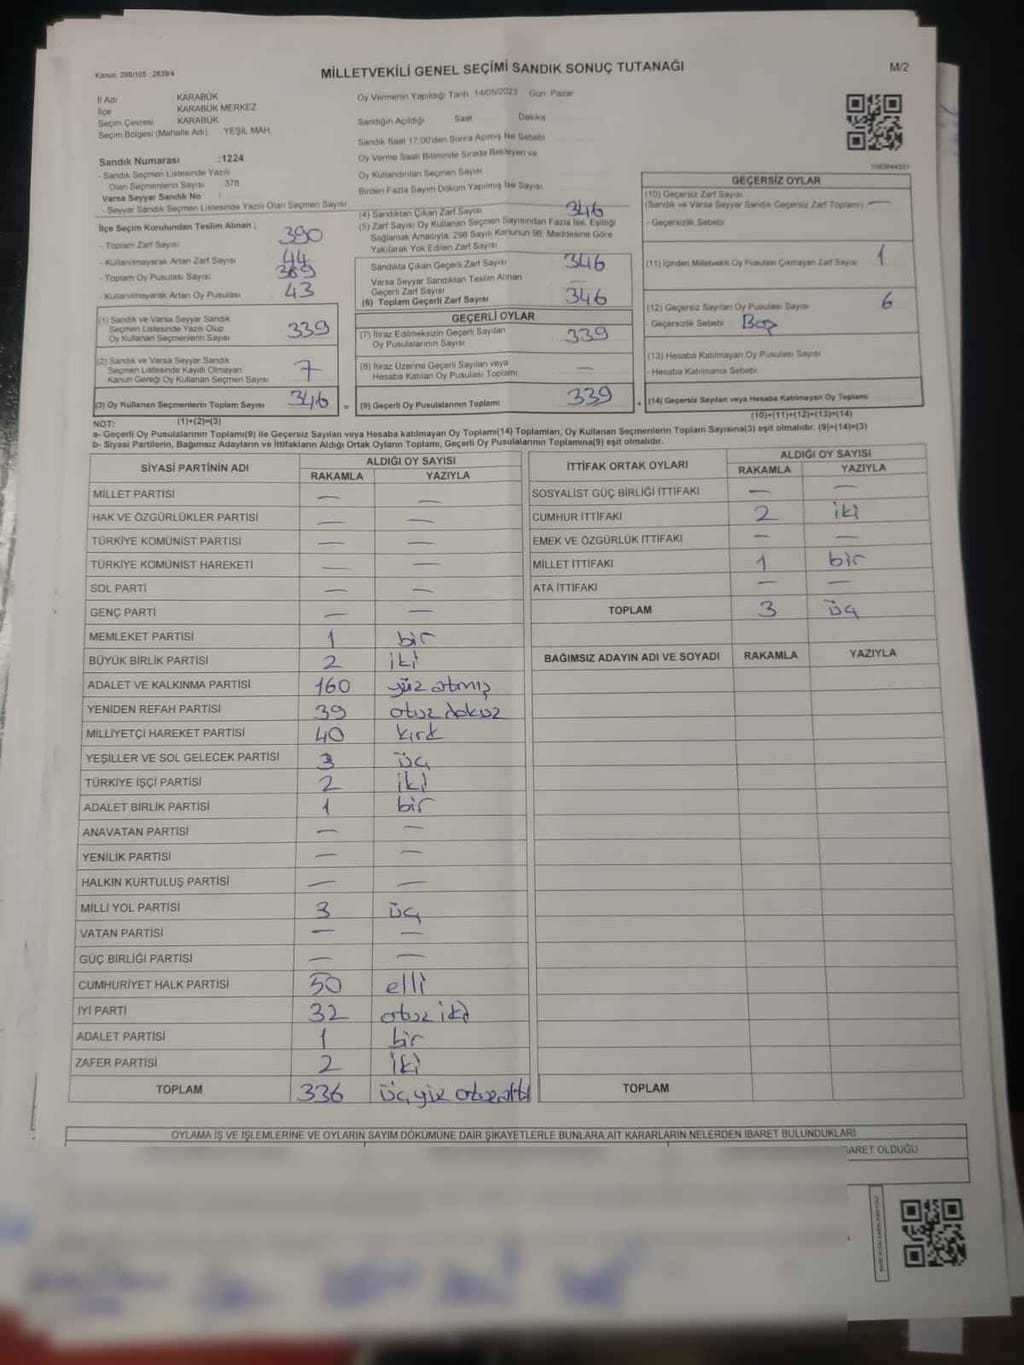 Kanun: 298/105 ; 2839/4
MİLLETVEKİLİ GENEL SEÇİMİ SANDIK SONUÇ TUTANAĞI
M/2
İl Adı : KARABÜK
İlçe : KARABÜK MERKEZ
Seçim Çevresi : KARABÜK
Seçim Bölgesi (Mahalle Adı) : YEŞİL MAH
Sandık Numarası :1224
- Sandık Seçmen Listesinde Yazılı
Olan Seçmenlerin Sayısı : 378
Varsa Seyyar Sandık No :
- Seyyar Sandık Seçmen Listesinde Yazılı Olan Seçmen Sayısı
Oy Vermenin Yapıldığı Tarih 14/05/2023 Gün: Pazar
Sandığın Açıldığı Saat Dakika
Sandık Saat 17:00'den Sonra Açılmış İse Sebebi
Oy Verme Saati Bitiminde Sırada Bekleyen ve
Oy Kullandırılan Seçmen Sayısı
Birden Fazla Sayım Döküm Yapılmış İse Sayısı
İlçe Seçim Kurulundan Teslim Alınan ;
- Toplam Zarf Sayısı 390
- Kullanılmayarak Artan Zarf Sayısı 44
- Toplam Oy Pusulası Sayısı 389
- Kullanılmayarak Artan Oy Pusulası 43
(1) Sandık ve Varsa Seyyar Sandık
Seçmen Listesinde Yazılı Olup
Oy Kullanan Seçmenlerin Sayısı 339
(2) Sandık ve Varsa Seyyar Sandık
Seçmen Listesinde Kayıtlı Olmayan
Kanun Gereği Oy Kullanan Seçmen Sayısı 7
(3) Oy Kullanan Seçmenlerin Toplam Sayısı 346 =
(1)+(2)=(3)
(4) Sandıktan Çıkan Zarf Sayısı 346
(5) Zarf Sayısı Oy Kullanan Seçmen Sayısından Fazla İse, Eşitliği
Sağlamak Amacıyla, 298 Sayılı Kanunun 98. Maddesine Göre
Yakılarak Yok Edilen Zarf Sayısı
Sandıkta Çıkan Geçerli Zarf Sayısı 346
Varsa Seyyar Sandıktan Teslim Alınan
Geçerli Zarf Sayısı —
(6) Toplam Geçerli Zarf Sayısı 346
GEÇERLİ OYLAR
(7) İtiraz Edilmeksizin Geçerli Sayılan
Oy Pusulalarının Sayısı 339
(8) İtiraz Üzerine Geçerli Sayılan veya
Hesaba Katılan Oy Pusulası Toplamı —
(9) Geçerli Oy Pusulalarının Toplamı 339 +
GEÇERSİZ OYLAR
(10) Geçersiz Zarf Sayısı
(Sandık ve Varsa Seyyar Sandık Geçersiz Zarf Toplamı) —
- Geçersizlik Sebebi
(11) İçinden Milletvekili Oy Pusulası Çıkmayan Zarf Sayısı 1
(12) Geçersiz Sayılan Oy Pusulası Sayısı 6
- Geçersizlik Sebebi Boş
(13) Hesaba Katılmayan Oy Pusulası Sayısı
- Hesaba Katılmama Sebebi
(14) Geçersiz Sayılan veya Hesaba Katılmayan Oy Toplamı
(10)+(11)+(12)+(13)=(14)
NOT:
a- Geçerli Oy Pusulalarının Toplamı(9) ile Geçersiz Sayılan veya Hesaba katılmayan Oy Toplamı(14) Toplamları, Oy Kullanan Seçmenlerin Toplam Sayısına(3) eşit olmalıdır. (9)+(14)=(3)
b- Siyasi Partilerin, Bağımsız Adayların ve İttifakların Aldığı Ortak Oyların Toplamı, Geçerli Oy Pusulalarının Toplamına(9) eşit olmalıdır.
SİYASİ PARTİNİN ADI ALDIĞI OY SAYISI
RAKAMLA YAZIYLA
MİLLET PARTİSİ — —
HAK VE ÖZGÜRLÜKLER PARTİSİ — —
TÜRKİYE KOMÜNİST PARTİSİ — —
TÜRKİYE KOMÜNİST HAREKETİ — —
SOL PARTİ — —
GENÇ PARTİ — —
MEMLEKET PARTİSİ 1 bir
BÜYÜK BİRLİK PARTİSİ 2 iki
ADALET VE KALKINMA PARTİSİ 160 yüz atmış
YENİDEN REFAH PARTİSİ 39 otuz dokuz
MİLLİYETÇİ HAREKET PARTİSİ 40 kırk
YEŞİLLER VE SOL GELECEK PARTİSİ 3 üç
TÜRKİYE İŞÇİ PARTİSİ 2 iki
ADALET BİRLİK PARTİSİ 1 bir
ANAVATAN PARTİSİ — —
YENİLİK PARTİSİ — —
HALKIN KURTULUŞ PARTİSİ — —
MİLLİ YOL PARTİSİ 3 üç
VATAN PARTİSİ — —
GÜÇ BİRLİĞİ PARTİSİ — —
CUMHURİYET HALK PARTİSİ 50 elli
İYİ PARTİ 32 otuz iki
ADALET PARTİSİ 1 bir
ZAFER PARTİSİ 2 iki
TOPLAM 336 üçyüz otuzaltı
İTTİFAK ORTAK OYLARI ALDIĞI OY SAYISI
RAKAMLA YAZIYLA
SOSYALİST GÜÇ BİRLİĞİ İTTİFAKI — —
CUMHUR İTTİFAKI 2 iki
EMEK VE ÖZGÜRLÜK İTTİFAKI — —
MİLLET İTTİFAKI 1 bir
ATA İTTİFAKI — —
TOPLAM 3 üç
BAĞIMSIZ ADAYIN ADI VE SOYADI RAKAMLA YAZIYLA
TOPLAM
OYLAMA İŞ VE İŞLEMLERİNE VE OYLARIN SAYIM DÖKÜMÜNE DAİR ŞİKAYETLERLE BUNLARA AİT KARARLARIN NELERDEN İBARET BULUNDUKLARI
İBARET OLDUĞU